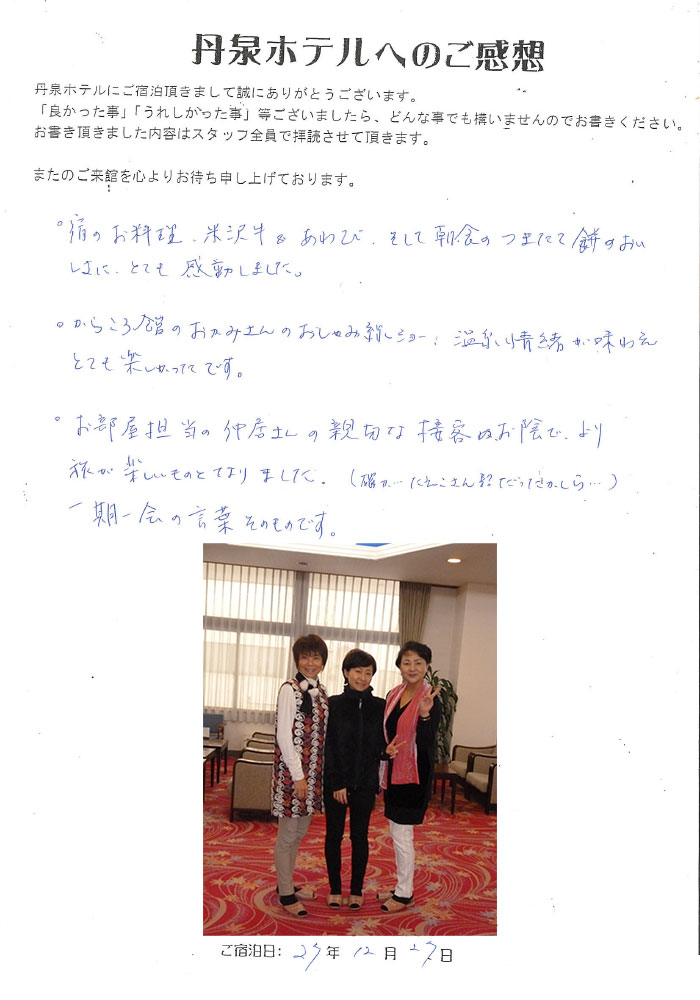 丹泉ホテルへのご感想
丹泉ホテルにご宿泊頂きまして誠にありがとうございます。
「良かった事」「うれしかった事」等ございましたら、どんな事でも構いませんのでお書きください。
お書き頂きました内容はスタッフ全員で拝読させて頂きます。
またのご来館を心よりお待ち申し上げております。
°宿のお料理、米沢牛& あわび、そして朝食のつきたて餅のおい
しさに、とても感動しました。
°からころ館のおかみさんのおしゃみ線ショー、温泉情緒が味わえ
とても楽しかったです。
°お部屋担当の仲居さんの親切な接客のお陰で、より
旅が楽しいものとなりました。(確か…
一期一会の言葉そのものです。
ご宿泊日: 27年 12月 27日